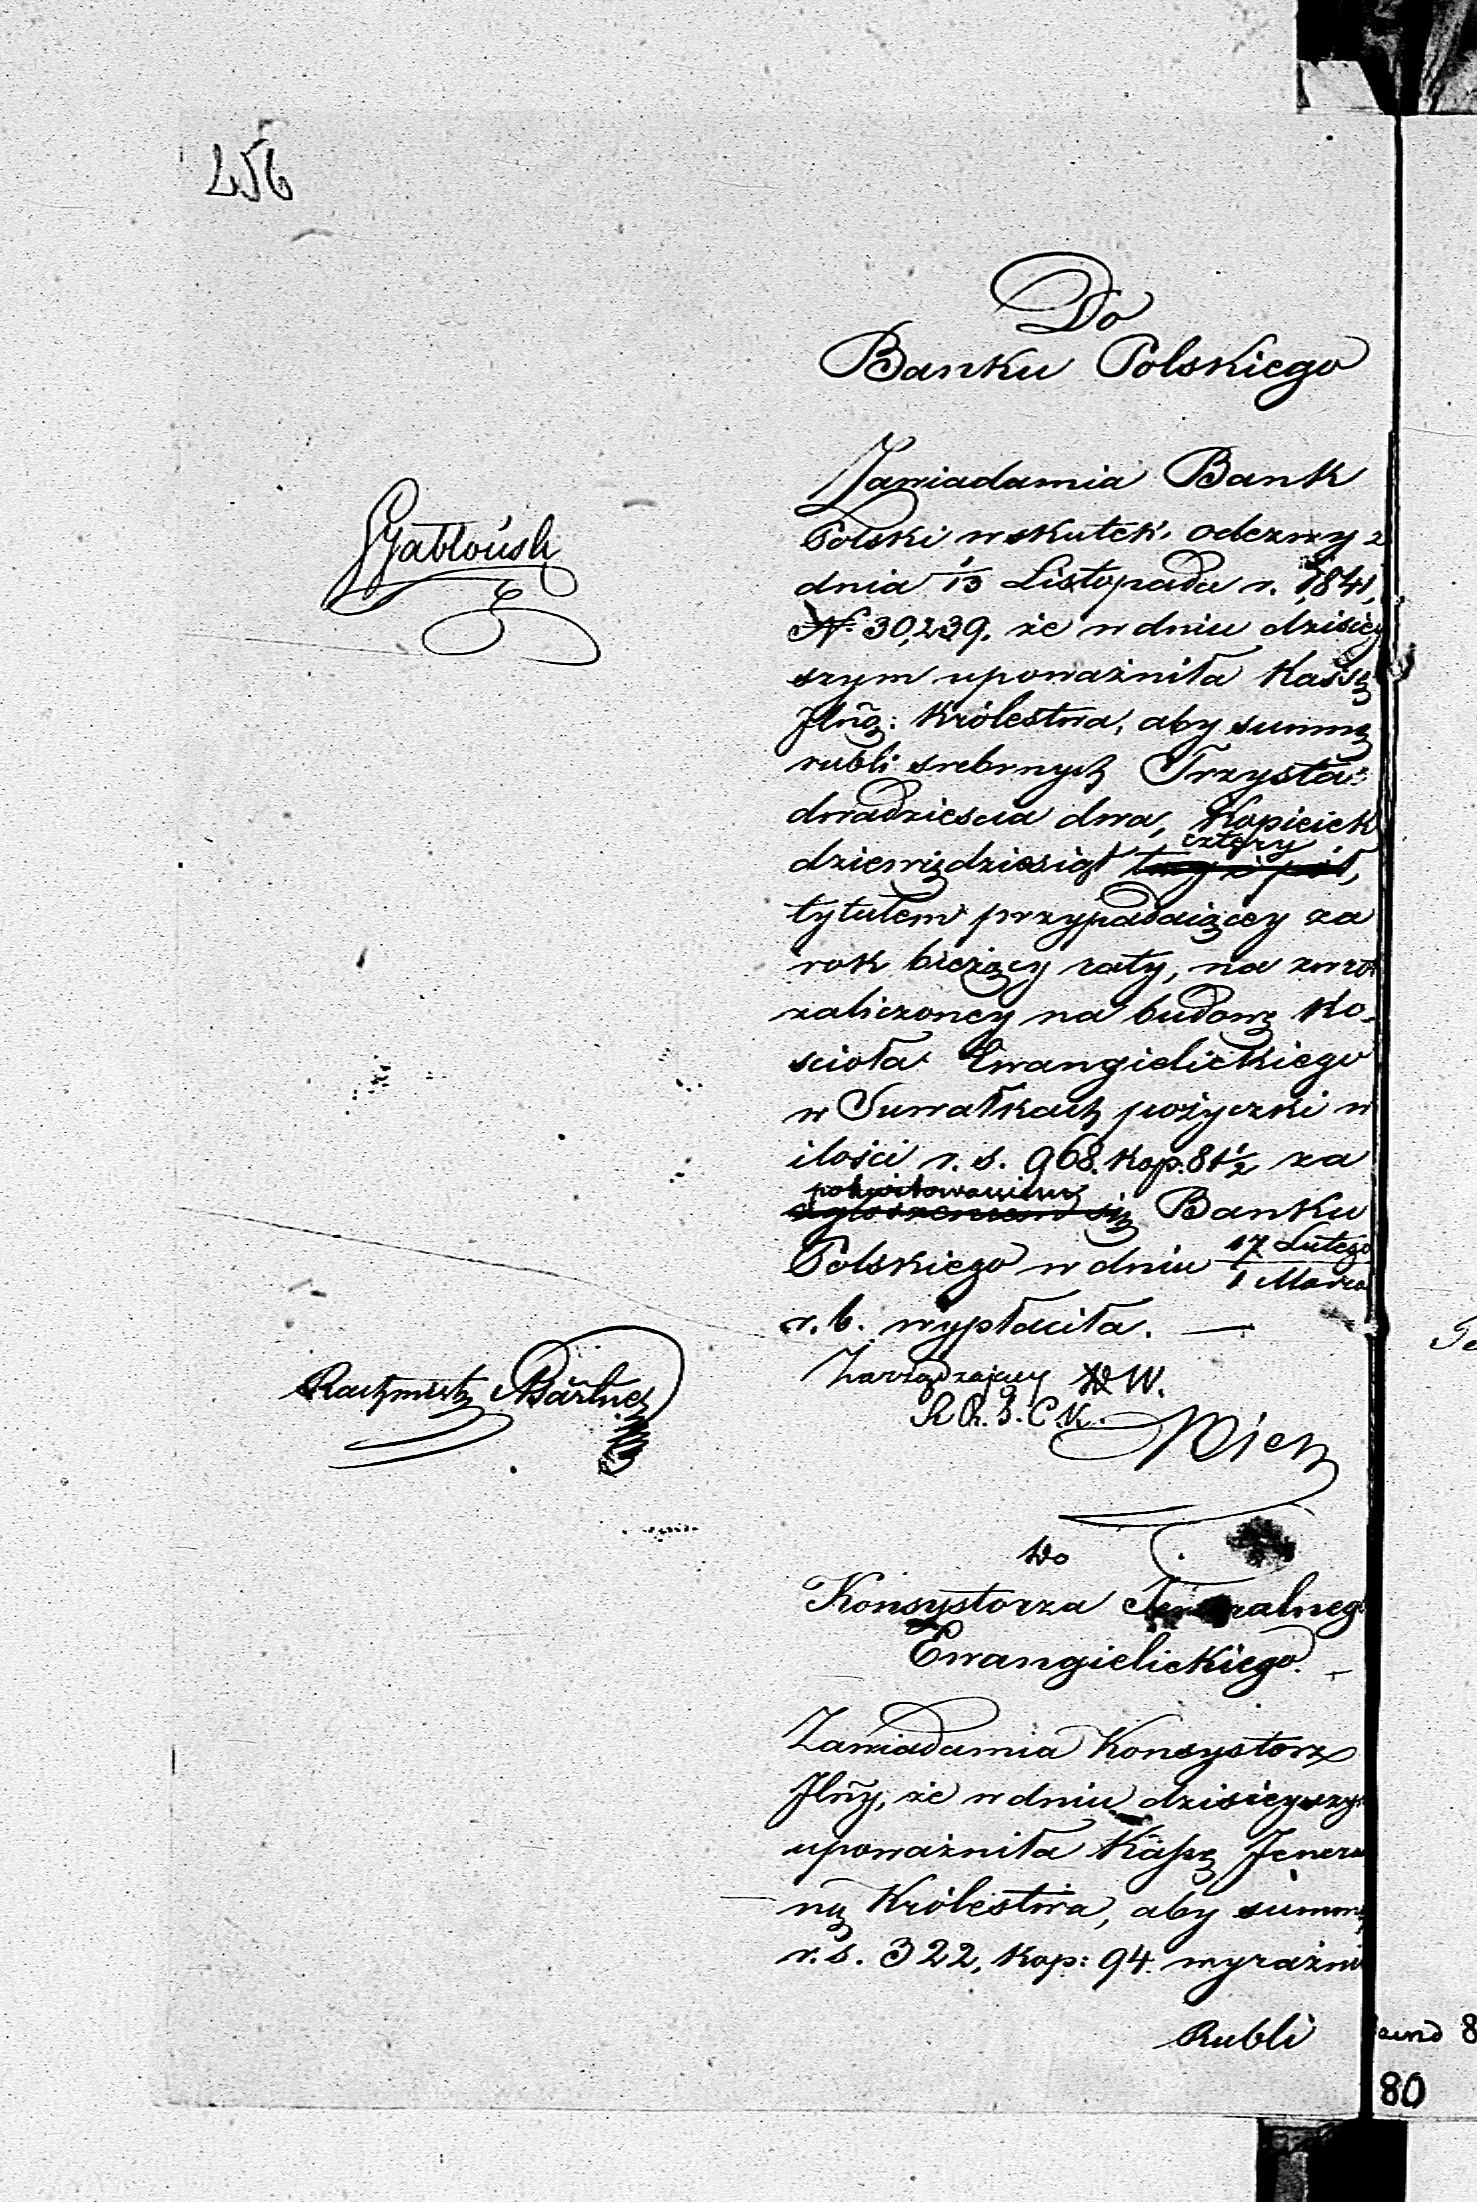 Do
Banku Polskiego
Zawiadamia Bank
Polski w skutek odezwy z
dnia 1/13 Listopada r. 1841,
N. 30,239. że w dniu dzisiey
szym upoważniła Kassę
Jlną: Królestwa, aby summę
rubli srebrnych Trzysta
dwadziescia dwa, Kopieiek
cztery
dziewiędziesiąt
tytułem przypadaiącey za
rok bieżący raty, na zwrot
zaliczoney na budowę Ko-
scioła Ewangielickiego
w Suwałkach pożyczki w
ilości r. s. 968. kop. 81½ za
pokwitowaniem
Banku
Polskiego w dniu 17 Lutego
1 Marca
r. b. wypłaciła. —
Zarządzający W.
Do
Konsystorza
Ewangielickiego.
Zawiadamia Konsystorz
Jlny, że w dniu dzisieyszym
upoważniła Kassę Jeneral
ną Królestwa, aby summę
r. s. 322, kop: 94. wyraźnie
Rubli
80